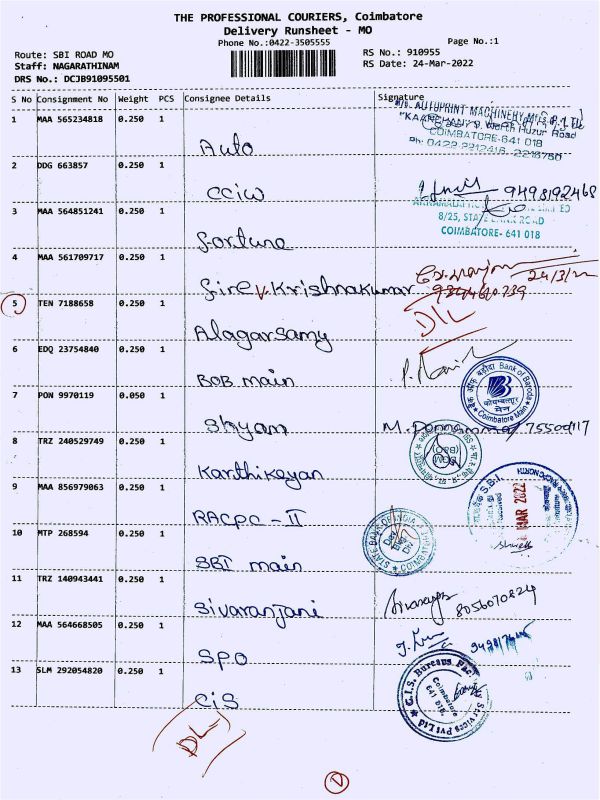 THE PROFESSIONAL COURIERS, Coimbatore
Delivery Runsheet - MO
Phone No.:0422-3505555
Page No.:1
Route: SBI ROAD MO
RS No.: 910955
Staff: NAGARATHINAM
RS Date: 24-Mar-2022
DRS No.: DCJB91095501
S No Consignment No Weight PCS Consignee Details Signature
1 MAA 565234818 0.250 1 Auto
AUTOPRINT MACHINERY
Huzur Road
COIMBATORE-641 018
2 DDG 663857 0.250 1 CCIW
9498192468
3 MAA 564851241 0.250 1 fortune
8/25, STATE BANK ROAD
COIMBATORE- 641 018
4 MAA 561709717 0.250 1 fire v. Krishnakumar
24/3/22
5 TEN 7188658 0.250 1 Alagarsamy
D/L
6 EDQ 23754840 0.250 1 BOB main
बैंक ऑफ़ बड़ौदा Bank of Baroda
Coimbatore Main
7 PON 9970119 0.050 1 Shyam
8 TRZ 240529749 0.250 1 Karthikayan
9 MAA 856979063 0.250 1 RACPC - II
S.B.I.
MAR 2022
10 MTP 268594 0.250 1 SBI main
STATE BANK OF INDIA
COIMBATORE
11 TRZ 140943441 0.250 1 Sivaranjani
8056070824
12 MAA 564668505 0.250 1 SPO
13 SLM 292054820 0.250 1 CIS
C.I.S. Bureaus Facility Services Pvt Ltd
Coimbatore
641 018.
DL